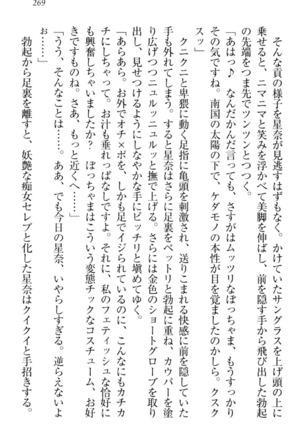 269
そんな貢の様子を星奈が見逃すはずもなく。かけていたサングラスを上げ頭の上に
乗せると、ニマニマと笑みを浮かべて美脚を伸ばし、前を隠す手から飛び出した勃起
の先端をつま先でツンツンとつつく。
「あはっ♪　なんだかんだ言っても、さすがはムッツリなぼっちゃま、もうすっかり
その気ですね。南国の太陽の下で、ケダモノの本性が目を覚ましたのかしら。クスク
スッ」
クニクニと卑猥に動く足指に亀頭を刺激され、送りこまれる快感に前を隠していた
手も外れてしまう。すると星奈はさらに足裏をベットリと勃起に重ね、カウパーを塗
り広げつつニュルッニュルッと撫で上げる。さらには金色のショートグローブを取り
出し、見せつけるようにしなやかな手にピッチリと嵌めてゆく。
「あらあら。お外でオチ×ポを、しかも足でイジられているのに、こんなにもカチカ
チにしちゃって。お汁も垂れっぱなしですよ。それに、私のフェティッシュな恰好に
も興奮しちゃいましたか？　ぼっちゃまはこういう変態チックなコスチューム、お好
きですものね。さあ、もっと近くへ……」
「うう、そんなことは……。ああ、でも今日の星奈、いやらしすぎる。逆らえないよ
お……」
勃起から足裏を離すと、妖艶な痴女セレブと化した星奈はクイクイと手招きする。